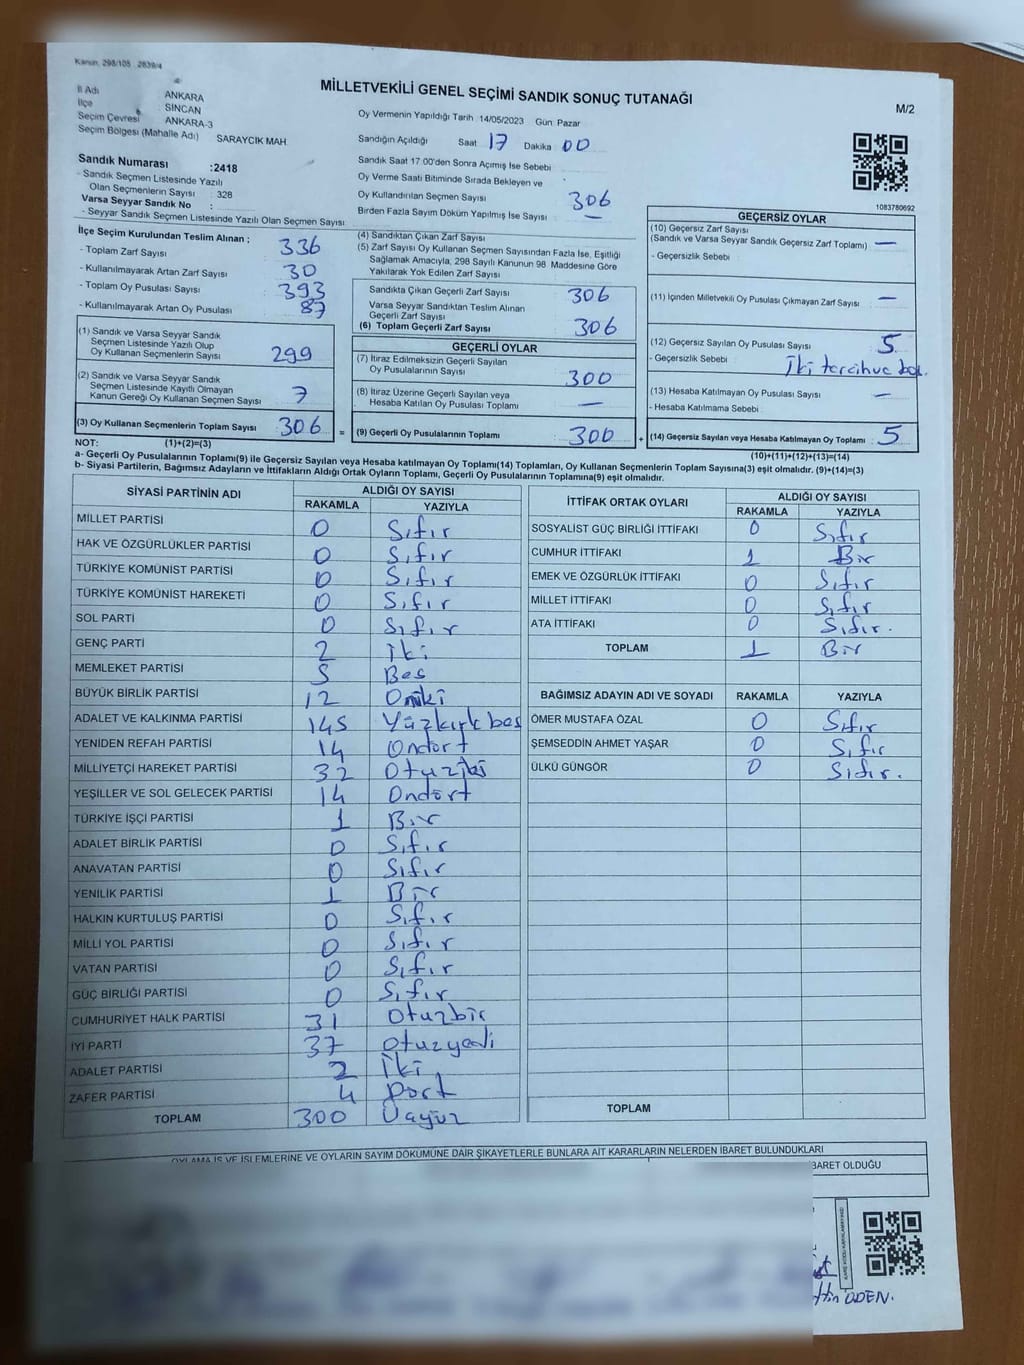 Kanun: 298/105 2839/4
MİLLETVEKİLİ GENEL SEÇİMİ SANDIK SONUÇ TUTANAĞI
M/2
İl Adı ANKARA
İlçe SİNCAN
Seçim Çevresi ANKARA-3
Seçim Bölgesi (Mahalle Adı) SARAYCIK MAH.
Sandık Numarası :2418
- Sandık Seçmen Listesinde Yazılı
Olan Seçmenlerin Sayısı : 328
Varsa Seyyar Sandık No :
- Seyyar Sandık Seçmen Listesinde Yazılı Olan Seçmen Sayısı
Oy Vermenin Yapıldığı Tarih 14/05/2023 Gün Pazar
Sandığın Açıldığı Saat 17 Dakika 00
Sandık Saat 17.00'den Sonra Açılmış İse Sebebi
Oy Verme Saati Bitiminde Sırada Bekleyen ve
Oy Kullandırılan Seçmen Sayısı 306
Birden Fazla Sayım Döküm Yapılmış İse Sayısı —
1083780692
İlçe Seçim Kurulundan Teslim Alınan ;
- Toplam Zarf Sayısı : 336
- Kullanılmayarak Artan Zarf Sayısı : 30
- Toplam Oy Pusulası Sayısı : 393
- Kullanılmayarak Artan Oy Pusulası : 87
(1) Sandık ve Varsa Seyyar Sandık
Seçmen Listesinde Yazılı Olup
Oy Kullanan Seçmenlerin Sayısı 299
(2) Sandık ve Varsa Seyyar Sandık
Seçmen Listesinde Kayıtlı Olmayan
Kanun Gereği Oy Kullanan Seçmen Sayısı 7
(3) Oy Kullanan Seçmenlerin Toplam Sayısı 306
(4) Sandıktan Çıkan Zarf Sayısı
(5) Zarf Sayısı Oy Kullanan Seçmen Sayısından Fazla İse, Eşitliği
Sağlamak Amacıyla, 298 Sayılı Kanunun 98. Maddesine Göre
Yakılarak Yok Edilen Zarf Sayısı
Sandıkta Çıkan Geçerli Zarf Sayısı : 306
Varsa Seyyar Sandıktan Teslim Alınan
Geçerli Zarf Sayısı
(6) Toplam Geçerli Zarf Sayısı 306
GEÇERLİ OYLAR
(7) İtiraz Edilmeksizin Geçerli Sayılan
Oy Pusulalarının Sayısı 300
(8) İtiraz Üzerine Geçerli Sayılan veya
Hesaba Katılan Oy Pusulası Toplamı —
= (9) Geçerli Oy Pusulalarının Toplamı 300
GEÇERSİZ OYLAR
(10) Geçersiz Zarf Sayısı
(Sandık ve Varsa Seyyar Sandık Geçersiz Zarf Toplamı) —
- Geçersizlik Sebebi
(11) İçinden Milletvekili Oy Pusulası Çıkmayan Zarf Sayısı —
(12) Geçersiz Sayılan Oy Pusulası Sayısı 5
- Geçersizlik Sebebi İki tercihve
(13) Hesaba Katılmayan Oy Pusulası Sayısı —
- Hesaba Katılmama Sebebi
+ (14) Geçersiz Sayılan veya Hesaba Katılmayan Oy Toplamı 5
NOT: (1)+(2)=(3)
(10)+(11)+(12)+(13)=(14)
a- Geçerli Oy Pusulalarının Toplamı(9) ile Geçersiz Sayılan veya Hesaba Katılmayan Oy Toplamı(14) Toplamları, Oy Kullanan Seçmenlerin Toplam Sayısına(3) eşit olmalıdır. (9)+(14)=(3)
b- Siyasi Partilerin, Bağımsız Adayların ve İttifakların Aldığı Ortak Oyların Toplamı, Geçerli Oy Pusulalarının Toplamına(9) eşit olmalıdır.
SİYASİ PARTİNİN ADI ALDIĞI OY SAYISI
RAKAMLA YAZIYLA
MİLLET PARTİSİ 0 Sıfır
HAK VE ÖZGÜRLÜKLER PARTİSİ 0 Sıfır
TÜRKİYE KOMÜNİST PARTİSİ 0 Sıfır
TÜRKİYE KOMÜNİST HAREKETİ 0 Sıfır
SOL PARTİ 0 Sıfır
GENÇ PARTİ 2 İki
MEMLEKET PARTİSİ 5 Bes
BÜYÜK BİRLİK PARTİSİ 12 Oniki
ADALET VE KALKINMA PARTİSİ 145 Yüzkırk bes
YENİDEN REFAH PARTİSİ 14 Ondört
MİLLİYETÇİ HAREKET PARTİSİ 32 Otuziki
YEŞİLLER VE SOL GELECEK PARTİSİ 14 Ondört
TÜRKİYE İŞÇİ PARTİSİ 1 Bir
ADALET BİRLİK PARTİSİ 0 Sıfır
ANAVATAN PARTİSİ 0 Sıfır
YENİLİK PARTİSİ 1 Bir
HALKIN KURTULUŞ PARTİSİ 0 Sıfır
MİLLİ YOL PARTİSİ 0 Sıfır
VATAN PARTİSİ 0 Sıfır
GÜÇ BİRLİĞİ PARTİSİ 0 Sıfır
CUMHURİYET HALK PARTİSİ 31 Otuzbir
İYİ PARTİ 37 Otuzyedi
ADALET PARTİSİ 2 İki
ZAFER PARTİSİ 4 Dört
TOPLAM 300 Üçyüz
İTTİFAK ORTAK OYLARI ALDIĞI OY SAYISI
RAKAMLA YAZIYLA
SOSYALİST GÜÇ BİRLİĞİ İTTİFAKI 0 Sıfır
CUMHUR İTTİFAKI 1 Bir
EMEK VE ÖZGÜRLÜK İTTİFAKI 0 Sıfır
MİLLET İTTİFAKI 0 Sıfır
ATA İTTİFAKI 0 Sıfır.
TOPLAM 1 Bir
BAĞIMSIZ ADAYIN ADI VE SOYADI RAKAMLA YAZIYLA
ÖMER MUSTAFA ÖZAL 0 Sıfır
ŞEMSEDDİN AHMET YAŞAR 0 Sıfır
ÜLKÜ GÜNGÖR 0 Sıfır.
TOPLAM
OYLAMA İŞ VE İŞLEMLERİNE VE OYLARIN SAYIM DÖKÜMÜNE DAİR ŞİKAYETLERLE BUNLARA AİT KARARLARIN NELERDEN İBARET BULUNDUKLARI
BARET OLDUĞU
ttin ÖDEN.